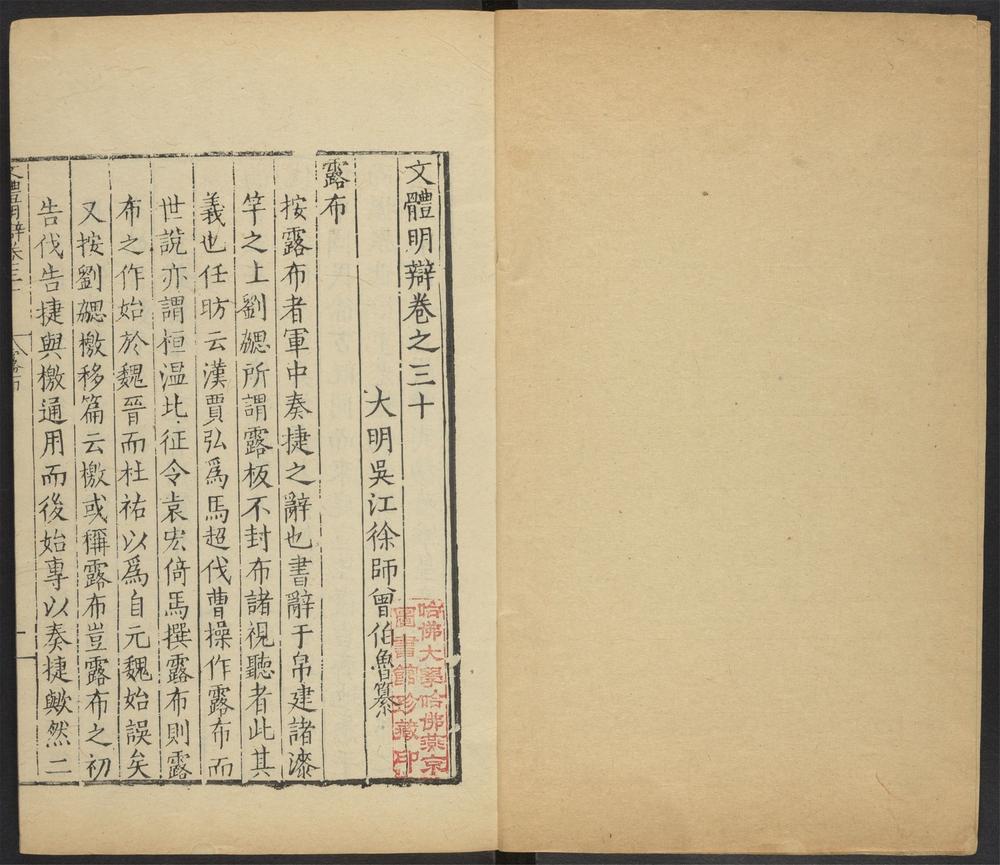 文體明辯卷之三十
大明吳江徐師曾伯魯纂
哈佛大學哈佛燕京
圖書館珍藏印
露布
按露布者軍中奏捷之辭也書辭于帛建諸漆
竿之上劉勰所謂露板不封布諸視聽者此其
義也任昉云漢賈弘爲馬超伐曹操作露布而
世說亦謂桓温北征令袁宏倚馬撰露布則露
布之作始於魏晉而杜祐以爲自元魏始誤矣
又按劉勰檄移篇云檄或稱露布豈露布之初
告伐告捷與檄通用而後始專以奏捷歟然二
文體明辯卷三十
露布